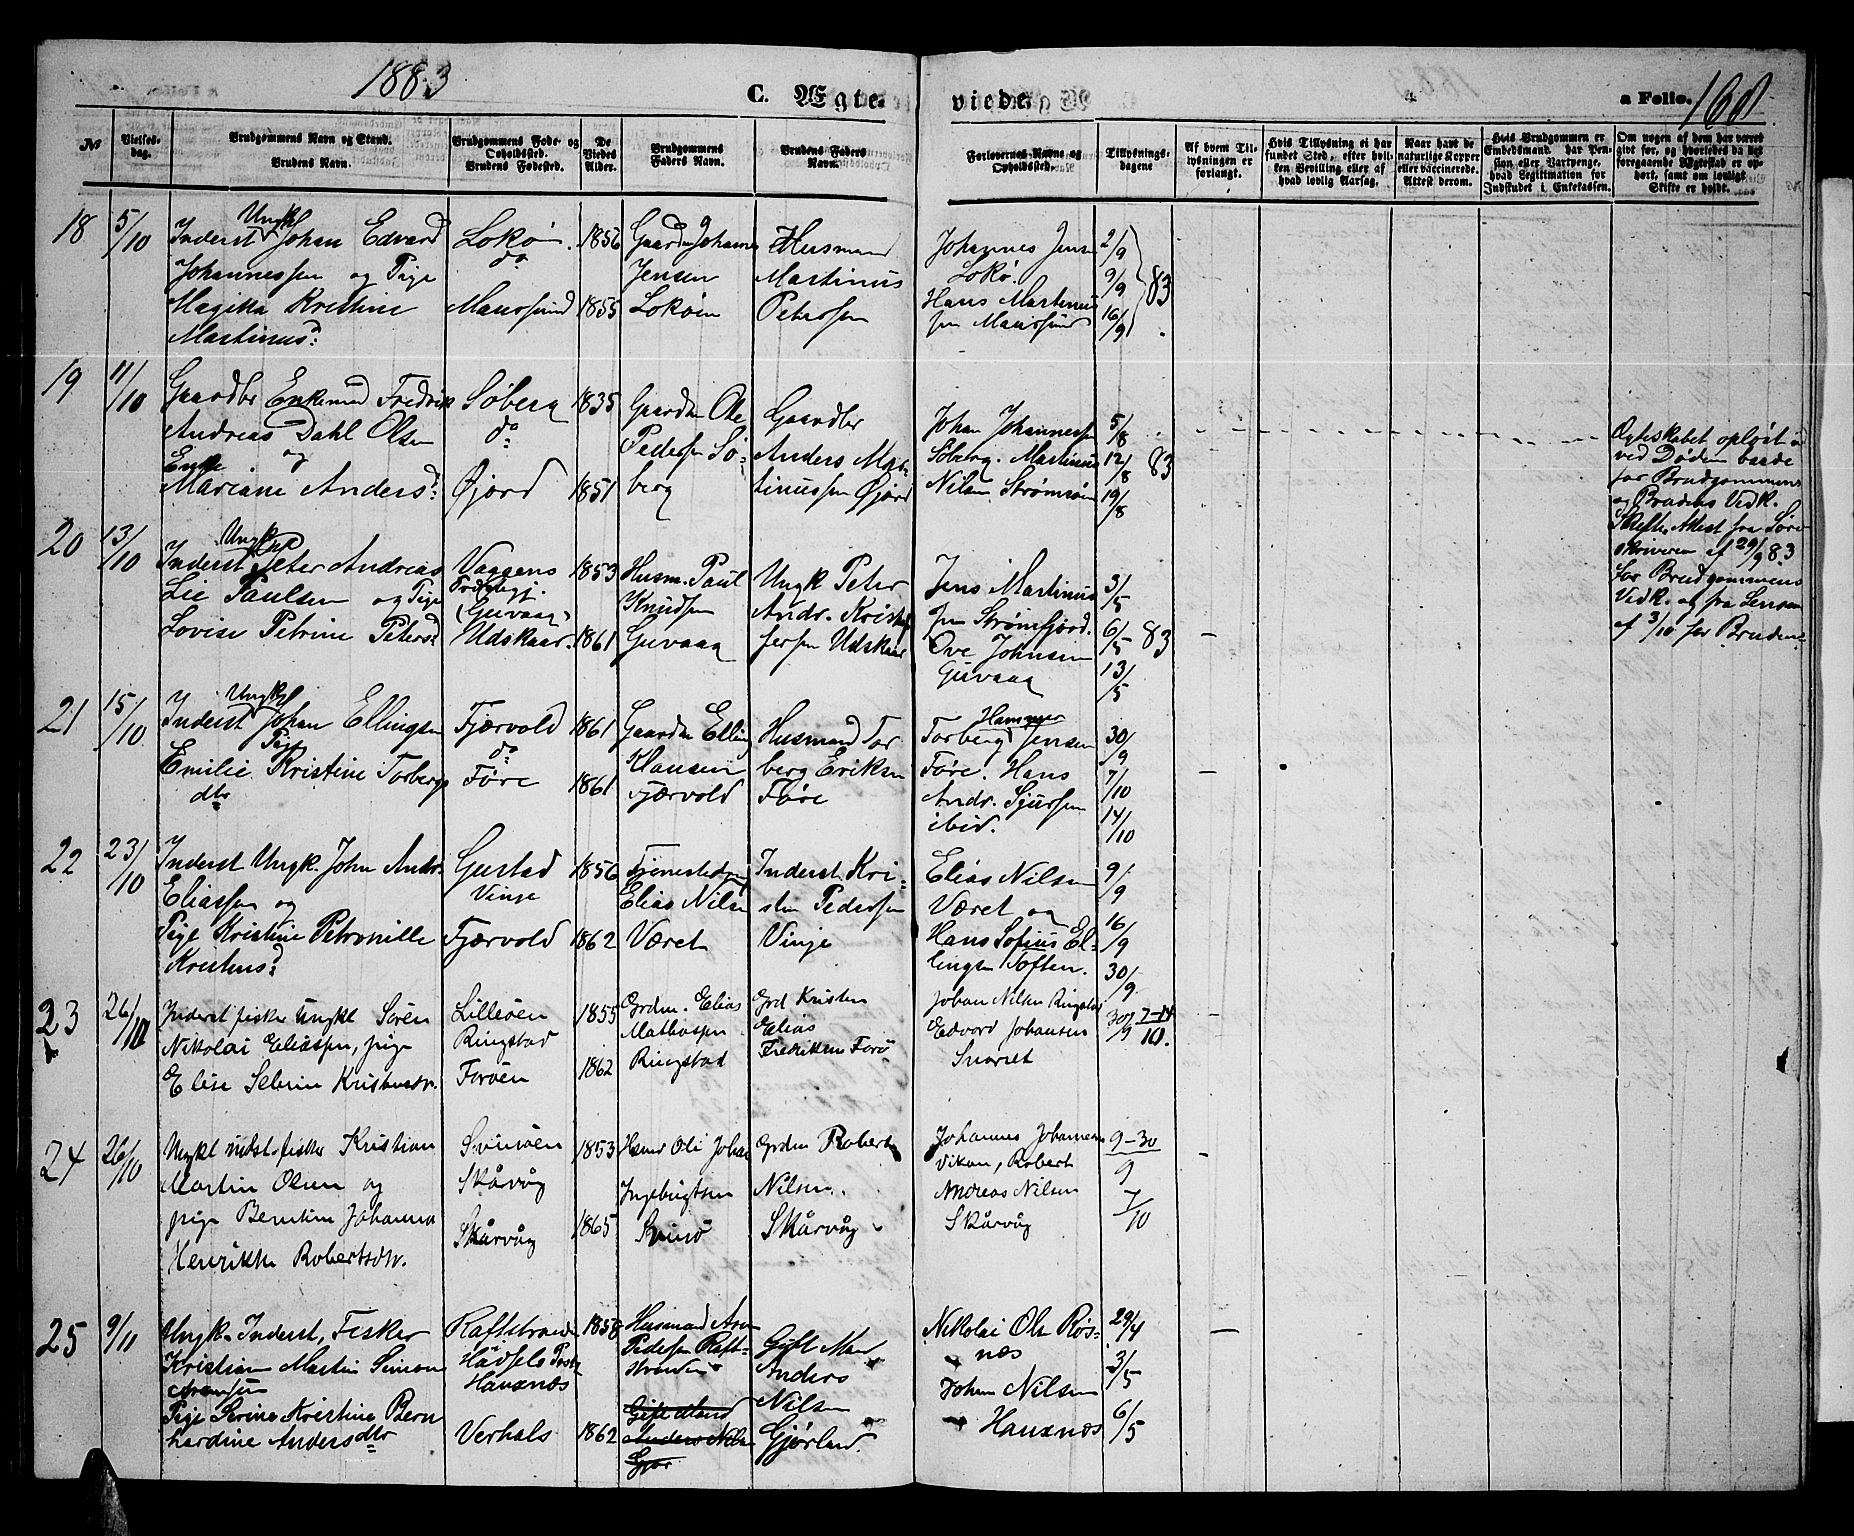 1883
C. Ægte
viede.
a Folio. 160
No
Vielses-
dag.
Brudgommens Navn og Stand.
Brudens Navn.
Brudgommens Føde- og
Opholdssted.
Brudens Fødested.
De
Viedes
Alder.
Brudgommens
Faders Navn.
Brudens Faders
Navn.
Forlovernes Navne og
Opholdssted.
Tillysnings-
dagene
Af hvem Til-
lysningen er
forlangt.
Hvis Tillysning ei har
fundet Sted, efter hvil-
ken Bevilling eller af
hvad lovlig Aarsag.
Naar havt de
naturlige Kopper
eller vaccinerede.
Attest derom.
Hvis Brudgommen er
Embedsmand, har Pen-
sion eller Vartpenge,
hvad Legitimation for
Indskudet i Enkekassen.
Om nogen af dem har været
givt før, og hvorledes da det
foregaaende Ægteskab er op-
hørt, samt om lovligt
Skifte er holdt.
18
5/10
Ungk
Inderst Johan Edvard
Johannessen og Pige
Magika Kristine
Martinusd:
Lokø
do
Maursund
1856
1855
Gaardm Johannes
Jensen
Lokøen
Husmand
Martinus
Petersen
Johannes Jensen
Lokø.
Hans Martinus
sen Maursund
2/9
9/9
16/9
83
19
11/10
Gaardbr Enkemd Fredrik
Andreas Dahl Olsen
og
Enke
Mariane Andersd:
Søberg
do
Øjord
1835
1851
Gaardm Ole
Pedersen Sø-
berg
Gaardbr
Anders Mar-
tinussen Øjord
Johan Johannessen
Søberg. Martinus
Nilsen Strømsøen
5/8
12/8
19/8
83
Ægteskabet opløst
ved Døden baade
for Brudgommens
og Brudens Vedk.
Skifte Attest fra Soren-
skriveren af 29/9 83
for Brudgommens
Vedk. og fra Lensm
af 3/10 for Brudens
20
13/10
Ungk
Inderst Peter Andreas
Lie Paulsen og Pige
Lovise Petrine Petersd:
Vaggens
(Guvaag)
Udskaar
1853
1861
Husm. Paul
Knudsen
Guvaag
Ungk Peter
Andr. Kristof
fersen Udskaar
Jens Martinus
sen Strømfjord.
Ove Johnsen
Guvaag
3/5
6/5
13/5
83
21
15/10
Ungk
Inderst Johan Ellingsen
Pige
Emilie Kristine Torbergs
dtr
Fjærvold
do
Føre
1861
1861
Gaardm Elling
Klausen
Fjærvold
Husmand Tor
berg Eriksen
Føre
Hammer
Torberg Jensen
Føre. Hans
Andr. Sjursen
ibid.
30/9
7/10
14/10
22
23/10
Inderst Ungk. John Andr.
Eliassen og
Pige Kristine Petronille
Kristensd:
Gustad
Vinje
Fjærvold
1856
1862
Elias Nilsen
Været
Inderst Kri-
sten Pedersen
Vinje
Elias Nilsen
Været og
Hans Sofius El-
lingsen Toften.
9/9
16/9
30/9
23
26/10
Inderst fisker Ungkl Søren
Nikolai Eliassen, pige
Elise Selmine Kristensdtr.
Lilleøen
Ringstad
Forøen
1855
1862
Grdm. Elias
Mathiassen
Ringstad
Grd Kristen
Elias
Fredriksen Forø
Johan Nilsen Ringstad
Edvard Johansen
Svarret
30/9 7-14/10.
24
26/10
Ungkl indst. fisker Kristian
Martin Olsen og
pige Berntine Johanna
Henrikke Robertsdtr.
Svinøen
Skårvåg
Skårvåg
1853
1865
Hsmd Ole Johan
Ingebrigtsen
Svinø
Grdm Robert
Nilsen.
Skårvåg
Johannes Johannesen
Vikan, Robert
Andreas Nilsen
Skårvåg
9-30/9
7/10
25
9/11
Ungk. Inderst, Fisker
Kristian Martin Simon
Aronsen
Pige Serine Kristine Bern
hardine Andersdtr
Raftstranden
Hadsels Præstg
Hauxnæs
Verhals
1858
1862
Husmand Aron
Pedersen Raft-
stranden
Gift Mand
Anders Nilsen
Gjør
Gift Mand
Anders
Nilsen
Gjørland.
Nikolai Ols Røs-
næs
Johan Nilsen
Hauxnæs
29/4
3/5
6/5